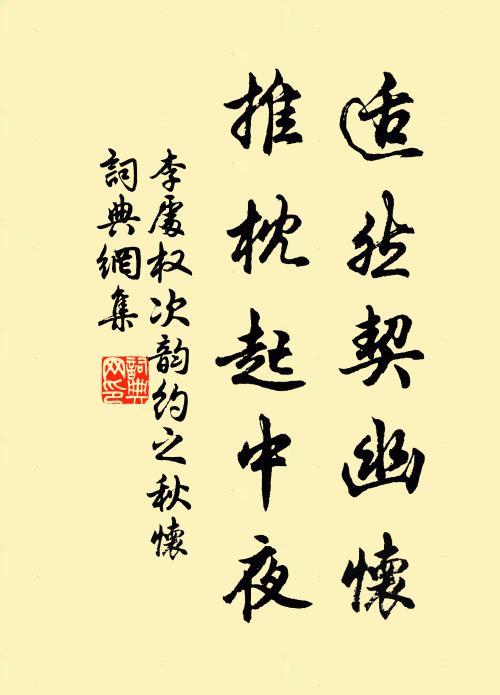 适然契幽懷
推枕起中夜
李處权次韵约之秋懷
詞典網集
詞典
网印